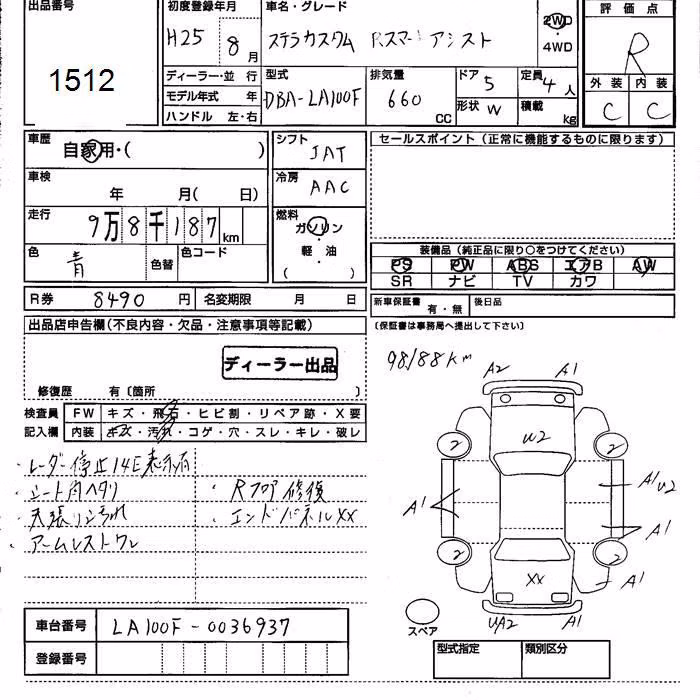 出品番号
1512
初度登録年月
H25 8月
車名・グレード
ステラカスタム Rスマートアシスト
2WD
・
4WD
評価点
R
外装 内装
C C
ディーラー・並行
モデル年式 年
ハンドル 左・右
型式
DBA-LA100F
排気量
660
CC
ドア 5
形状 W
定員 4人
積載 kg
車歴
自家用・( )
車検
年 月( 日)
走行
9万8千187km
色
青
色替
色コード
シフト
IAT
冷房
AAC
燃料
ガソリン
・
軽・油
( )
セールスポイント(正常に機能するものに限ります)
装備品(純正品に限り○をつけてください)
PS PW ABS エアB AW
SR ナビ TV カワ
R券 8490円
名変期限 月 日
新車保証書 有・無
後日品
(保証書は事務局へ提出して下さい)
出品店申告欄(不良内容・欠品・注意事項等記載)
ディーラー出品
修復歴 有〔箇所 〕
98188km
検査員
記入欄
FW キズ・飛石・ヒビ割・リペア跡・X要
内装 キズ・汚れ・コゲ・穴・スレ・キレ・破レ
・レーダー停止14E表示有
・シート内ヘタリ
・アームレストワレ
・Rフロア修復
・エンドパネルXX
A2 A1
U2
2 2
A1
A1 U2
A1
2 2
XX
A1
UA2 A1
スペア
車台番号 LA100F-0036937
登録番号
型式指定 類別区分